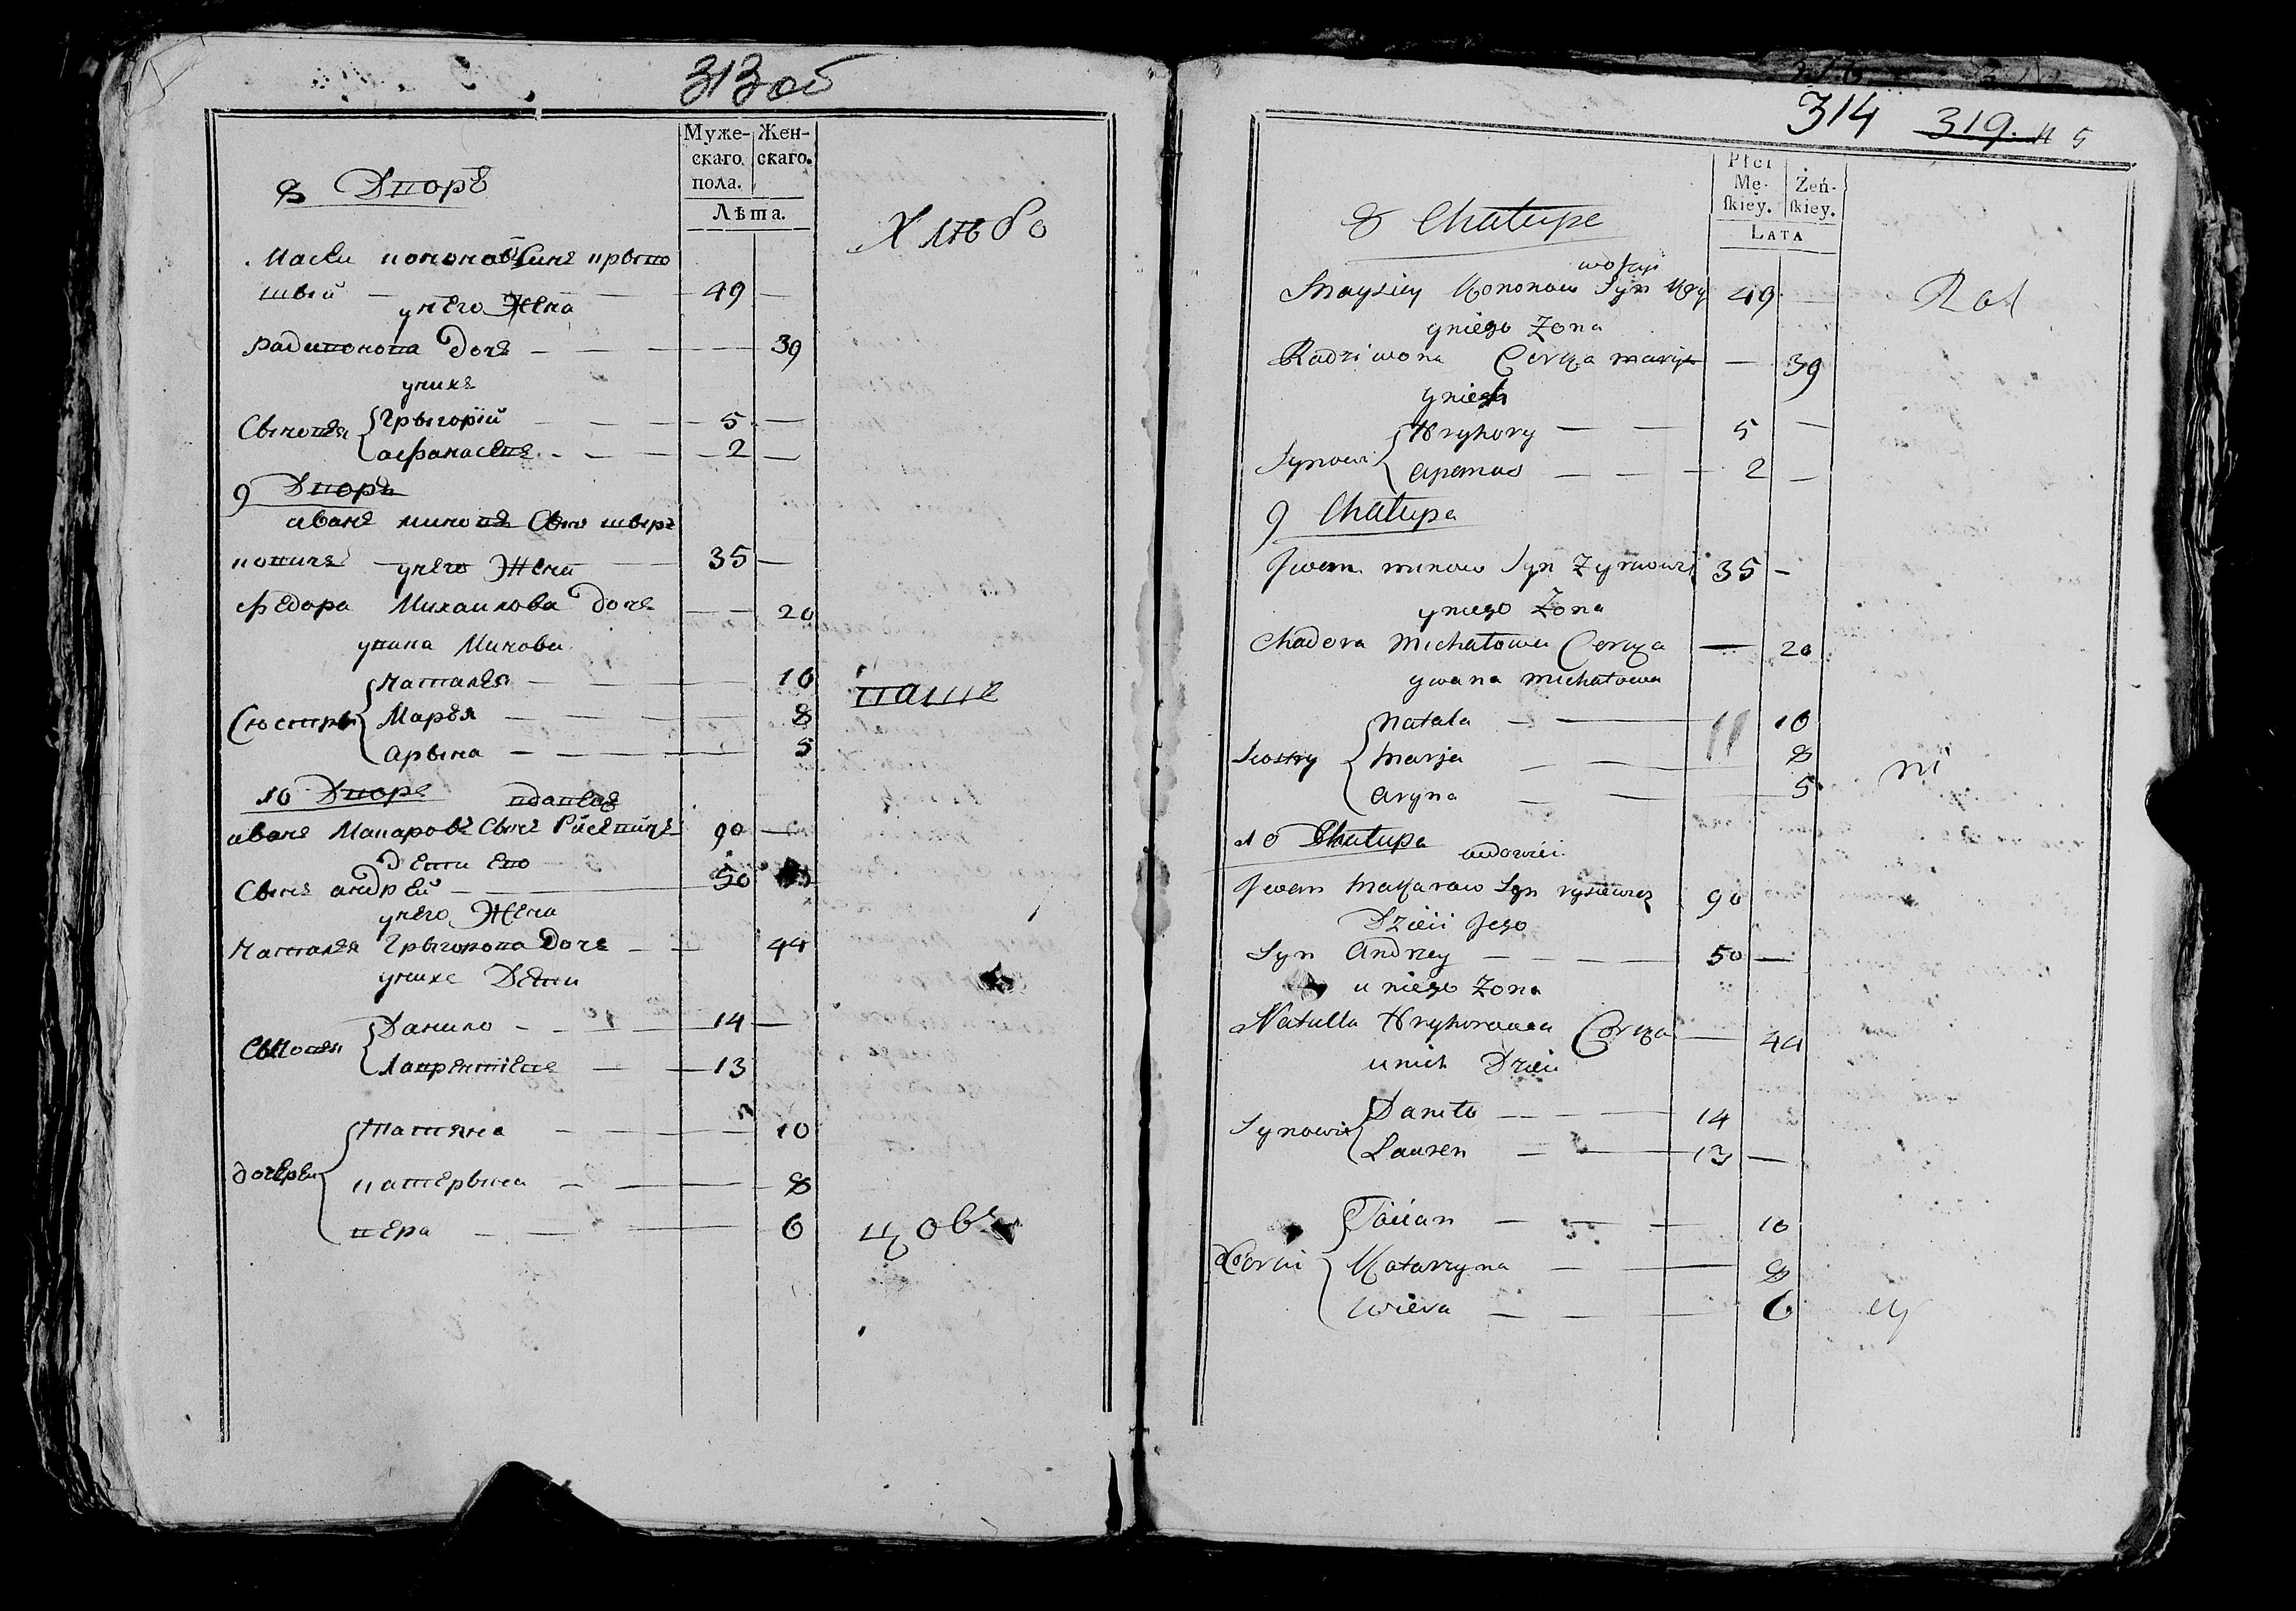 313 об
Муже-
скаго
пола.
Жен-
скаго.
Лѣта.
8 Дворъ
Хлѣбо
49 —
у него Жена
Радивонова Дочь — — — 39
у нихъ
Сыновья Грыгорій — — 5 —
Афанасей — — 2 —
9 Дворъ
иванъ минова Сынъ
35 —
у него Жена
федора Михаилова дочь — — 20
Минова
Сюстры Наталья — — 10
Марья — — 8
Арына — — 5
паше
10 Дворъ вдовецъ
иванъ Макаровъ Сынъ 90 —
дети ево
Сынъ андрей — 50
у него Жена
Наталья Грыгорова дочь — — 44
у нихъ Дети
Сыновья Данило — — 14 —
Лаврентіей — — 13
дочери Татяна — — 10
Катерына — — 8
Вера — — 6
цовъ
314 319. 5
Płci
Mę-
ſkiey.
Żeń-
ſkiey.
LATA
8 Chałupa
Kononow Syn 49 —
Rol
y niego Zona
Radziwona Corka — 39
y nich
Synowi Hryhory — — 5 —
Apanas — — 2 —
9 Chałupa
Jwan minow Syn 35 —
y niego Zona
Chadora Michałowa Corka — 20
ywana michałowa
Siostry Natala — — 10
Marja — — 8
Aryna — — 5
ni
10 Chałupa wdowiec
Jwan Makarow Syn 90
Dzieci Jego
Syn Andrzey — — 50 —
u niego Zona
Natalla Hryhorowa Corka — 44
u nich Dzieci
Synowie Daniło — — 14
Lauren — — 13 —
Corki Tacian — — 10
Katarzyna — — 8
Wiera — — 6
cy